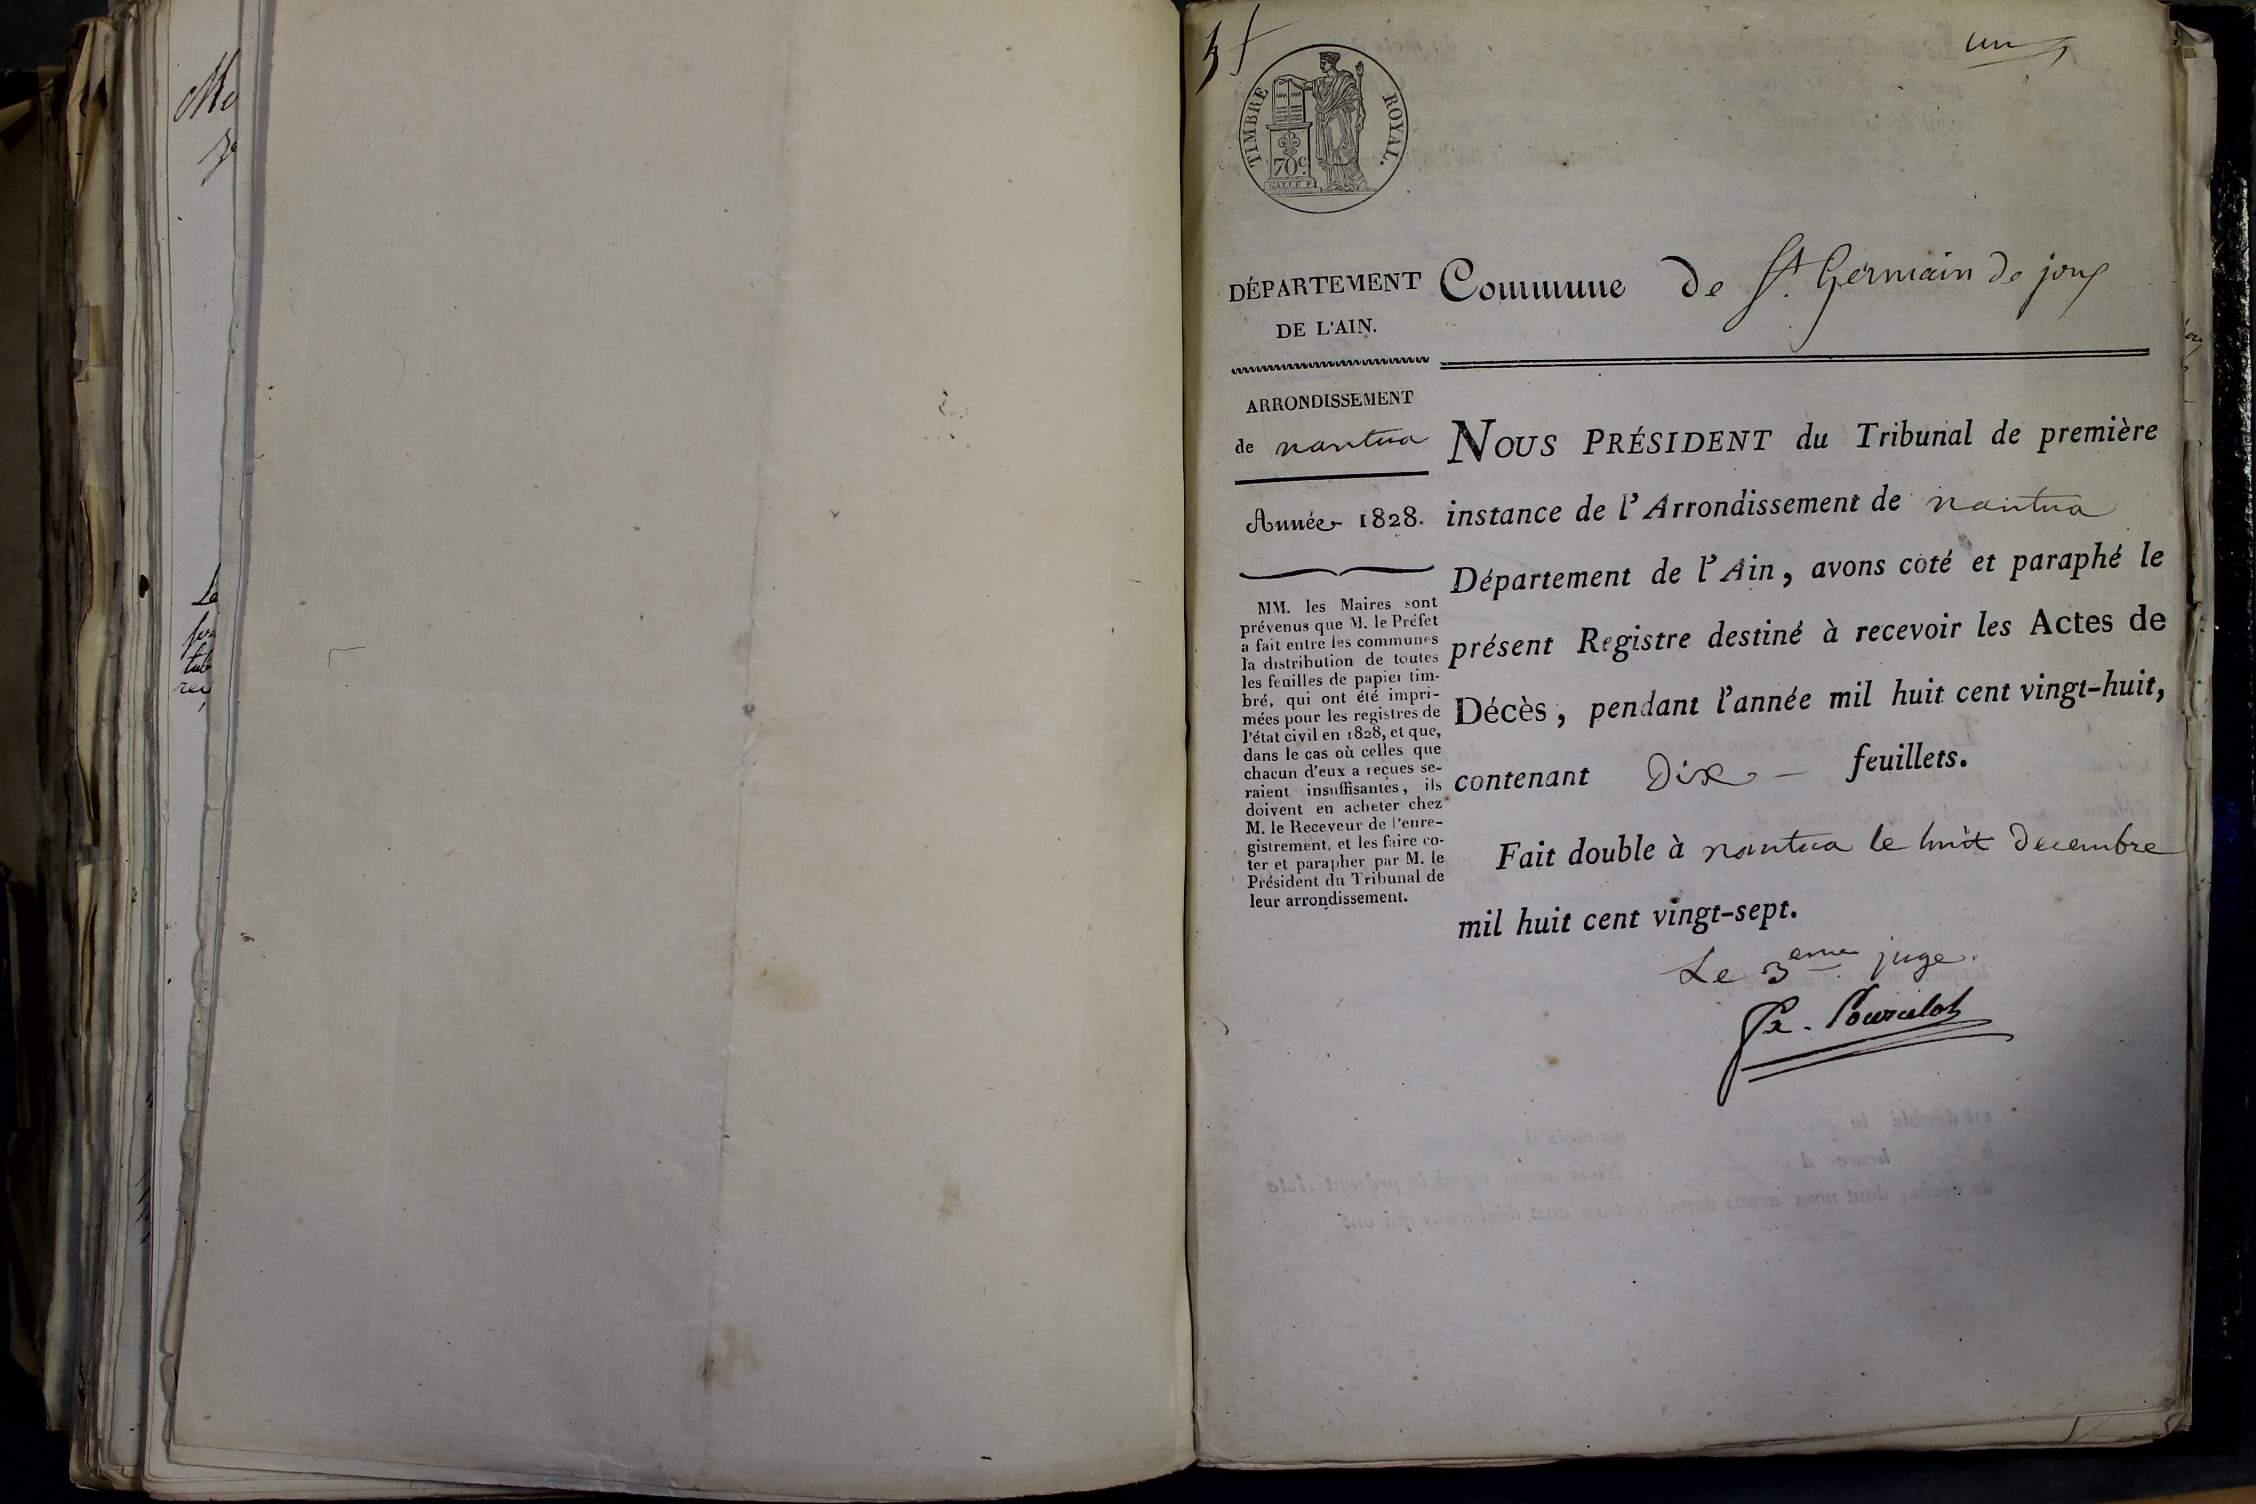 un
TIMBRE ROYAL.
70c.
GALLE F.
DÉPARTEMENT
DE L'AIN.
Commune de St. Germain de joux
ARRONDISSEMENT
de nantua
Année 1828.
MM. les Maires sont
prévenus que M. le Préfet
a fait entre les communes
la distribution de toutes
les feuilles de papier tim-
bré, qui ont été impri-
mées pour les registres de
l'état civil en 1828, et que,
dans le cas où celles que
chacun d'eux a reçues se-
raient insuffisantes, ils
doivent en acheter chez
M. le Receveur de l'enre-
gistrement, et les faire co-
ter et parapher par M. le
Président du Tribunal de
leur arrondissement.
NOUS PRÉSIDENT du Tribunal de première
instance de l'Arrondissement de nantua
Département de l'Ain, avons coté et paraphé le
présent Registre destiné à recevoir les Actes de
Décès, pendant l'année mil huit cent vingt-huit,
contenant Dix feuillets.
Fait double à nantua le huit decembre
mil huit cent vingt-sept.
Le 3eme juge.